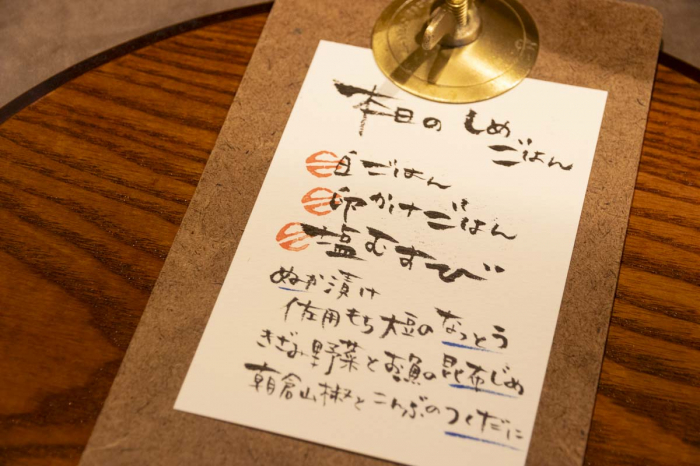 本日の しめ
ごはん
白ごはん
卵かけごはん
塩むすび
ぬか漬け
佐用もち大豆の なっとう
きざみ野菜とお魚の昆布じめ
朝倉山椒とこんぶのつくだに